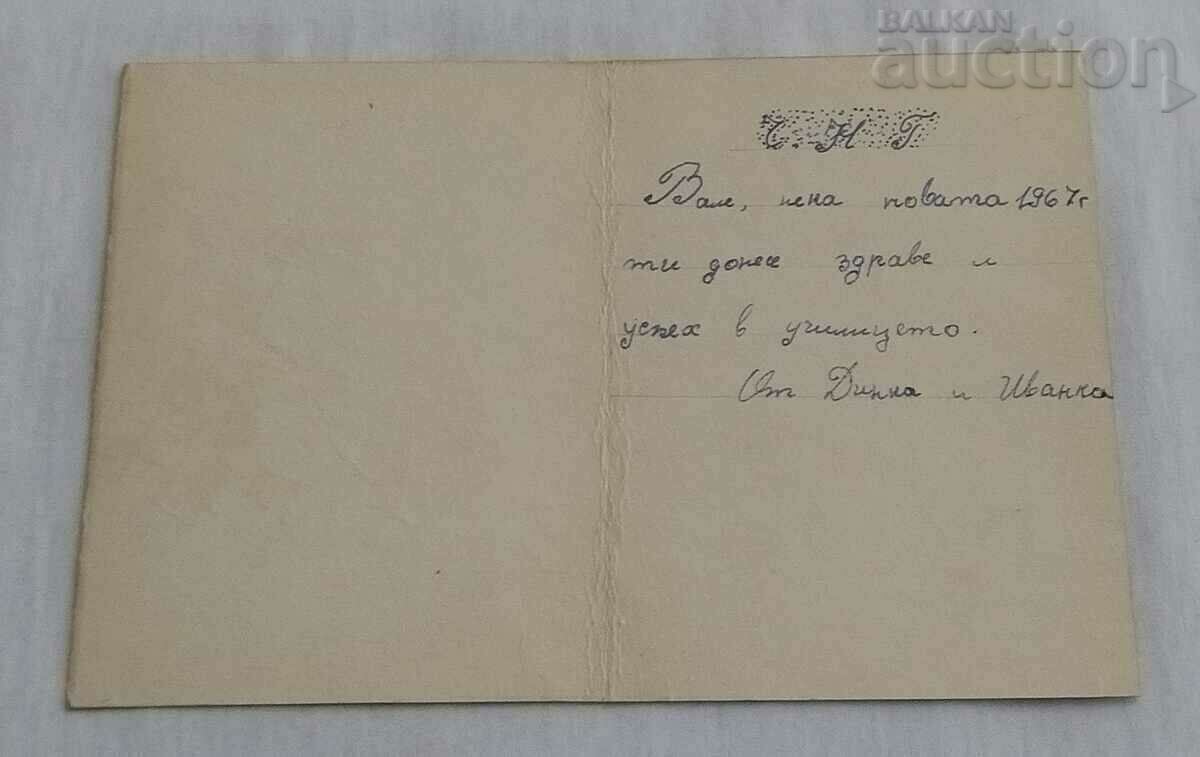 BALKAN
auction
Ч. Н. Г
Вале, нека новата 1967г
ти донесе здраве и
успех в училището.
От Динка и Иванка